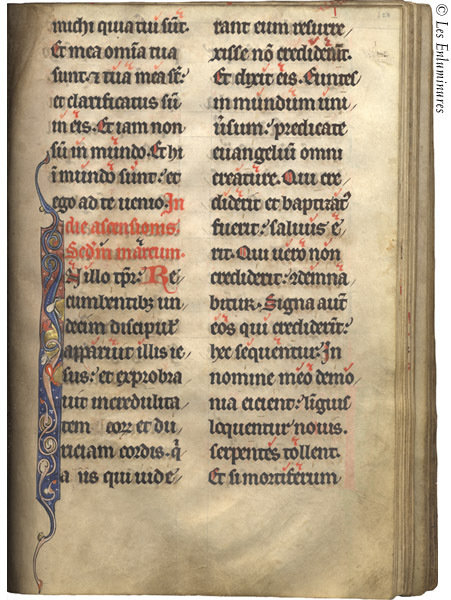 michi quia tui sūt.
Et mea om̄ia tua
sunt. ⁊ tua mea sт̄.
et clarificatus sū
in eis. Et iam non
sū in mundo. Et hi
ī mundo sunt: et
ego ad te uenio. In
die ascensionis
Scd̄m marcum.
In illo tp̄r. Re
cumbentibꝫ un
decim discipul̄
apparuit illis ie
sus: et exprobra
uit incredulita
tem corꝝ et du
riciam cordis. q̄
a us qui uide
rant eum resurre
xisse nō crediderūt.
Et dixit eis. Euntes
in mundum uni
uersum: predicate
euangeliū omni
creature. Qui cre
diderit et baptizat᷑
fuerit: saluus e
rit. Qui uero non
crediderit: ꝯdemna
bitur. Signa aut̄
eos qui crediderīt:
hec sequentur. In
nomine meo demo
nia eicient: līguis
loquentur nouis.
serpentes tollent.
Et si mortiferum
© Les Enluminures